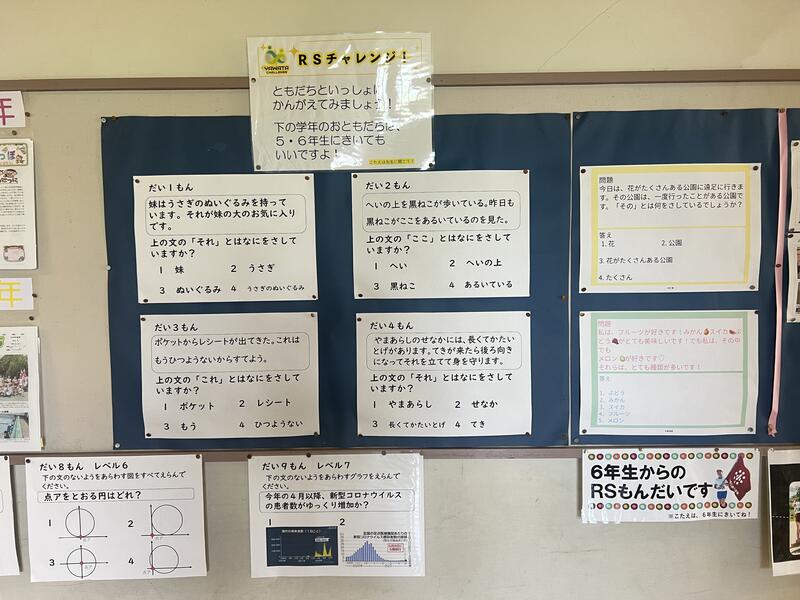 YAWATA
CHALLENGE
RSチャレンジ!
ともだちといっしょに
かんがえてみましょう!
下の学年のおともだちは、
5・6年生にきいても
いいですよ!
こたえは先生に聞こう!
年
年
だい1もん
妹はうさぎのぬいぐるみを持って
います。それが妹の大のお気に入り
です。
上の文の「それ」とはなにをさして
いますか?
1 妹 2 うさぎ
3 ぬいぐるみ 4 うさぎのぬいぐるみ
だい2もん
へいの上を黒ねこが歩いている。昨日も
黒ねこがここをあるいているのを見た。
上の文の「ここ」とはなにをさして
いますか?
1 へい 2 へいの上
3 黒ねこ 4 あるいている
だい3もん
ポケットからレシートが出てきた。これは
もうひつようないからすてよう。
上の文の「これ」とはなにをさして
いますか?
1 ポケット 2 レシート
3 もう 4 ひつようない
だい4もん
やまあらしのせなかには、長くてかたい
とげがあります。てきが来たら後ろ向き
になってそれを立てて身を守ります。
上の文の「それ」とはなにをさして
いますか?
1 やまあらし 2 せなか
3 長くてかたいとげ 4 てき
問題
今日は、花がたくさんある公園に遠足に行きま
す。その公園は、一度行ったことがある公園で
す。「その」とは何をさしているでしょうか?
答え
1. 花 2. 公園
3. 花がたくさんある公園
4. たくさん
問題
私は、フルーツが好きです!みかん🍊スイカ🍉ぶ
どう🍇がとても美味しいです!でも私は、その中
でも
メロン🍈が好きです♡
それらは、とても種類が多いです!
答え
1. ぶどう
2. みかん
3. スイカ
4. フルーツ
5. メロン
だい8もん レベル6
下の文のないようをあらわす図をすべてえらんで
ください。
点アをとおる円はどれ?
1 2
3 4
点ア
だい9もん レベル7
下の文のないようをあらわすグラフをえらんで
ください。
今年の4月以降、新型コロナウイルス
の患者数がゆっくり増加か?
1 2
6年生からの
RSもんだいです
※こたえは、6年生にきいてね!